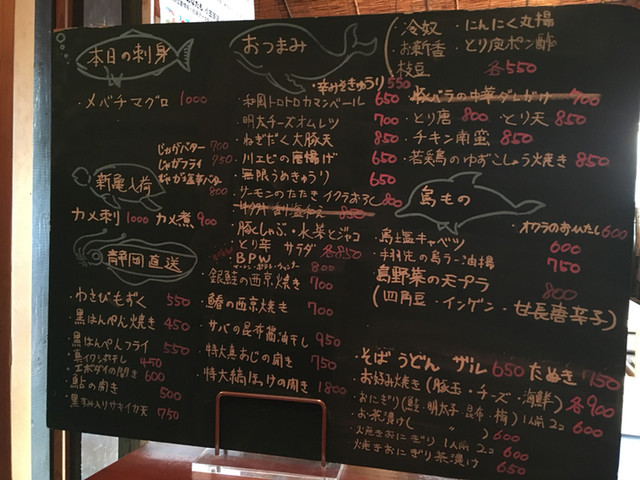 本日の刺身
・メバチマグロ 1000
じゃがバター 700
じゃがフライ 750
じゃが塩辛バター 800
新亀入荷
カメ刺 1000 カメ煮 900
静岡直送
・わさびもずく 550
・黒はんぺん焼き 450
・黒はんぺんフライ 550
450
・エボダイの開き 600
・鮎の開き 500
・黒すみ入りサキイカ天 750
おつまみ
・辛みそきゅうり 550
・和風トロトロカマンベール 650
・明太チーズオムレツ 700
・ねぎだく大豚天 850
・川エビの唐揚げ 650
・無限うめきゅうり 650
・サーモンのたたきイクラおろし 800
850
・豚しゃぶ・水菜とジャコ
・とり辛 サラダ 各850
・BPW
800
・銀鮭の西京焼き 700
・鰆の西京焼き 700
・サバの昆布醤油干し 950
・特大真あじの開き 750
・特大縞ほっけの開き 1800
・冷奴 ・にんにく丸揚
・お新香 ・とり皮ポン酢
・枝豆 各550
・豚バラの中華ダレがけ 700
・とり唐 800 ・とり天 850
・チキン南蛮 850
・若采鳥のゆずこしょう焼き 850
島もの
・オクラのおひたし 600
・島塩キャベツ 600
・手羽先の島ラー油揚 750
島野菜の天プラ 800
(四角豆・インゲン・甘長唐辛子)
・そば うどん ザル 650 たぬき 750
・お好み焼き(豚玉・チーズ・海鮮)各900
・おにぎり(鮭・明太子・昆布・梅)1人前 2コ 600
・お茶漬け( 〃 ) 600
・焼きおにぎり 1人前 2コ 600
・焼きおにぎり茶漬け 650